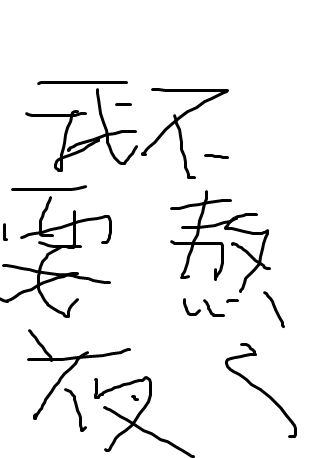 我不
要熬
夜